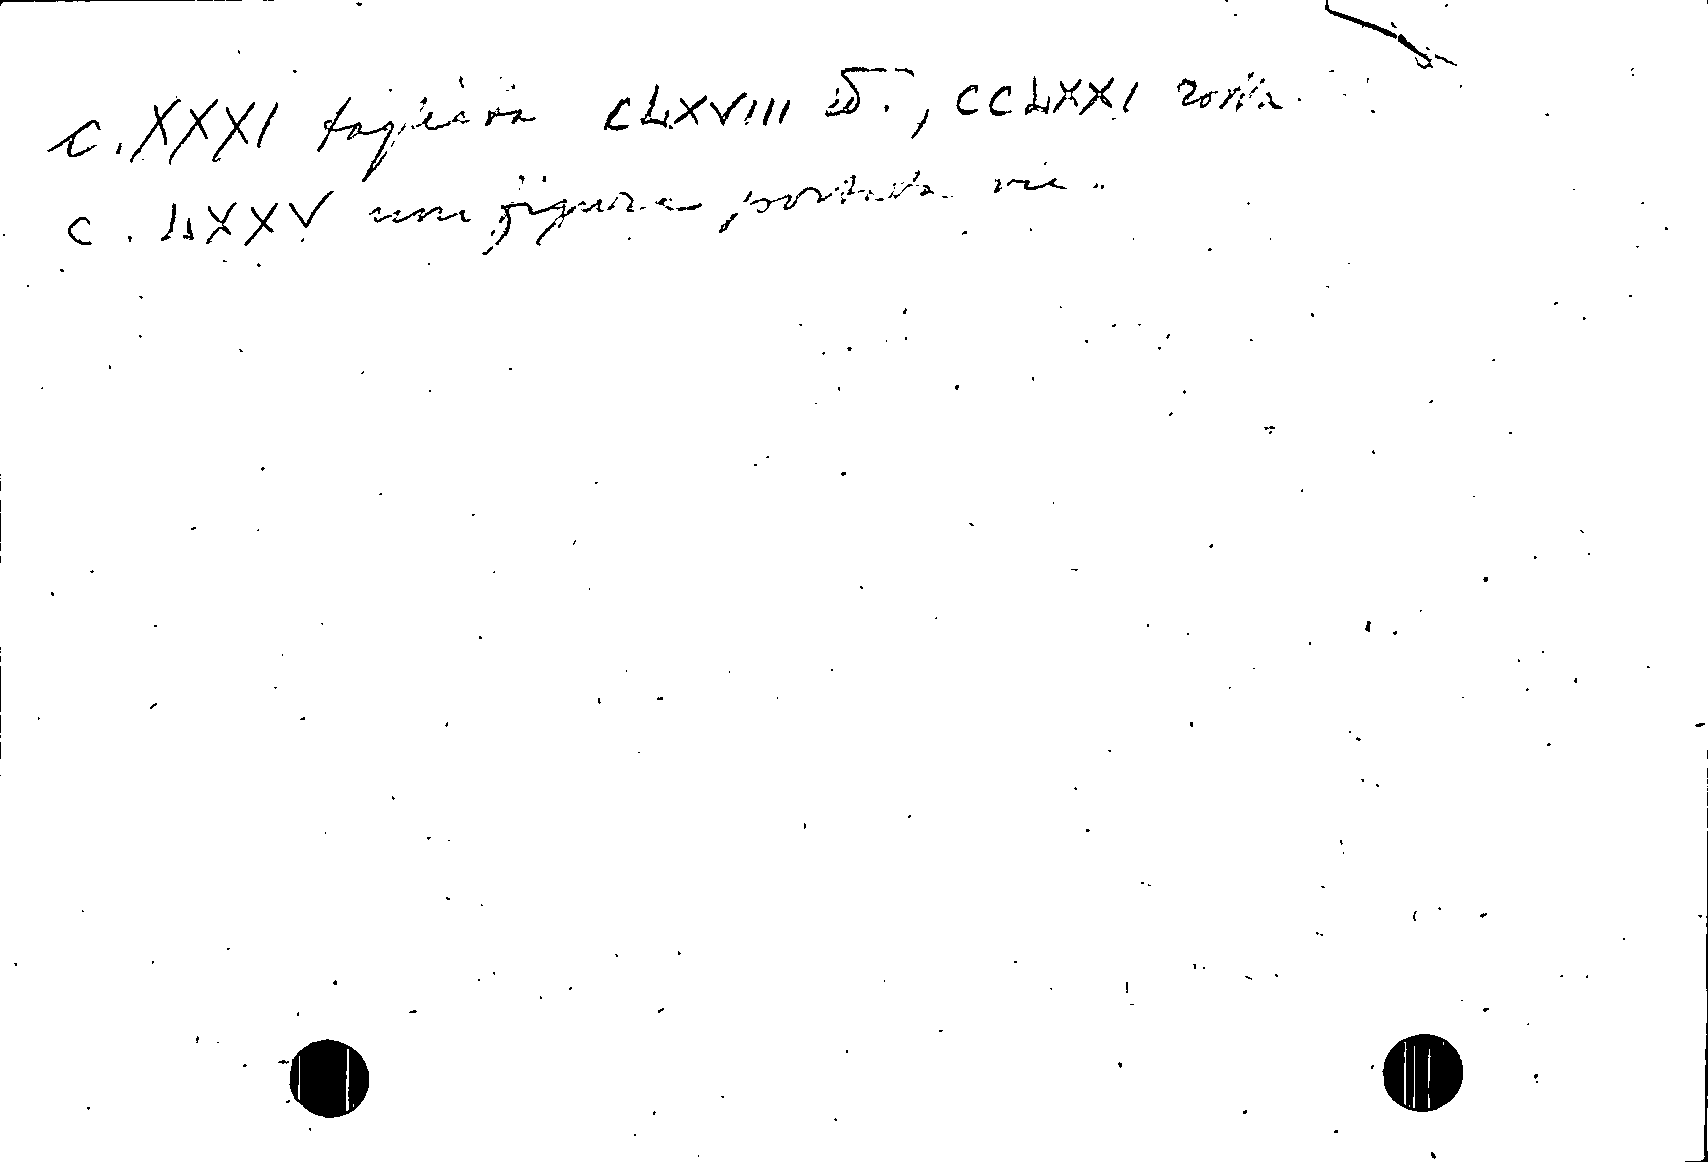 c. XXXI tagliata CLXVIII id., CCLXXI rotta
c. LXXV una figura portata via.